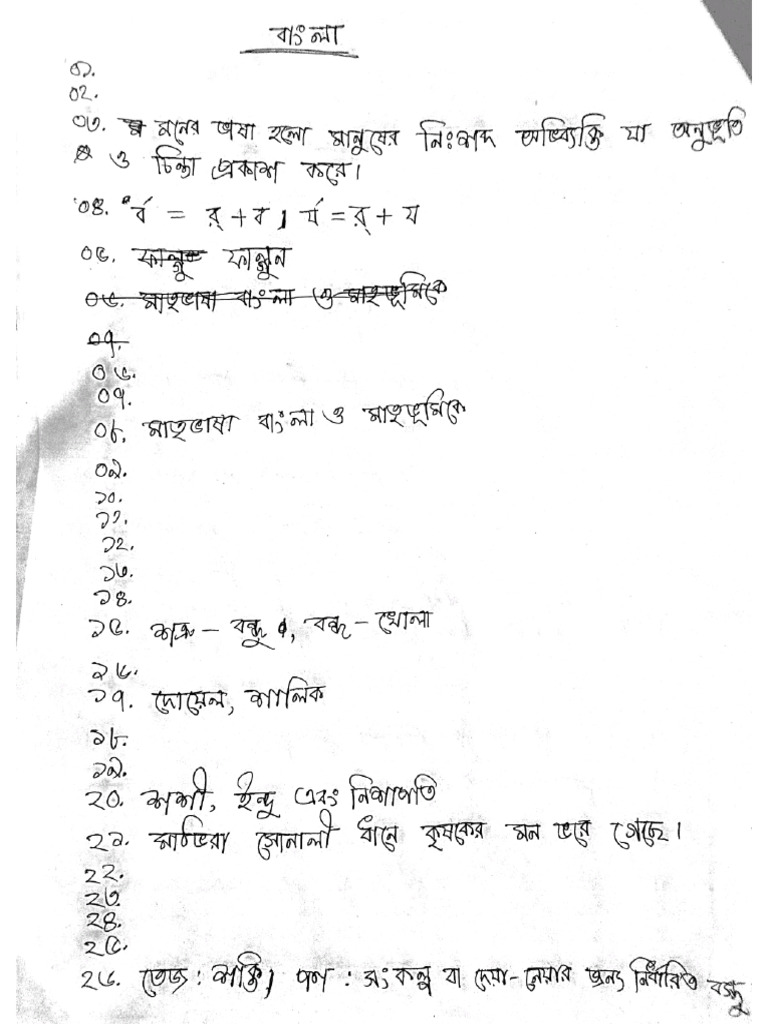 বাংলা
০১.
০২.
০৩. মনের ভাষা হলো মানুষের নিঃশব্দ অভিব্যক্তি যা অনুভূতি
ও চিন্তা প্রকাশ করে।
০৪. র্ব = র্ + ব, র্য = র্ + য
০৫. ফাল্গু ফাল্গুন
০৬. মাতৃভাষা বাংলা ও মাতৃভূমিকে
০৭.
০৬.
০৭.
০৮. মাতৃভাষা বাংলা ও মাতৃভূমিকে
০৯.
১০.
১১.
১২.
১৩.
১৪.
১৫. শত্রু - বন্ধু, বন্ধ - খোলা
১৬.
১৭. দোয়েল, শালিক
১৮.
১৯.
২০. শশী, ইন্দু এবং নিশাপতি
২১. মাঠভরা সোনালী ধানে কৃষকের মন ভরে গেছে।
২২.
২৩.
২৪.
২৫.
২৬. তেজ : শক্তি, পণ : সংকল্প বা দেয়া-নেয়ার জন্য নির্ধারিত বস্তু